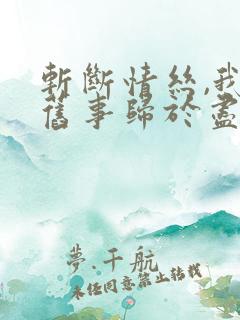 斬斷情絲,我
舊事歸於盡
夢.千航
未经同意禁止转载